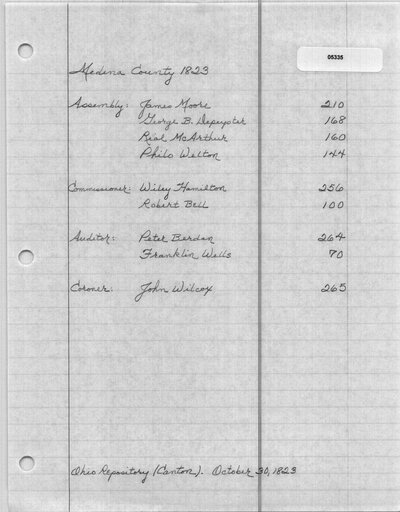 05335
Medina County 1823
Assembly: James Moore 210
George B. Depeyster 168
Rial McArthur 160
Philo Welton 144
Commissioner: Wiley Hamilton 256
Robert Bell 100
Auditor: Peter Berdan 264
Franklin Wells 70
Coroner: John Wilcox 265
Ohio Repository (Canton). October 30, 1823